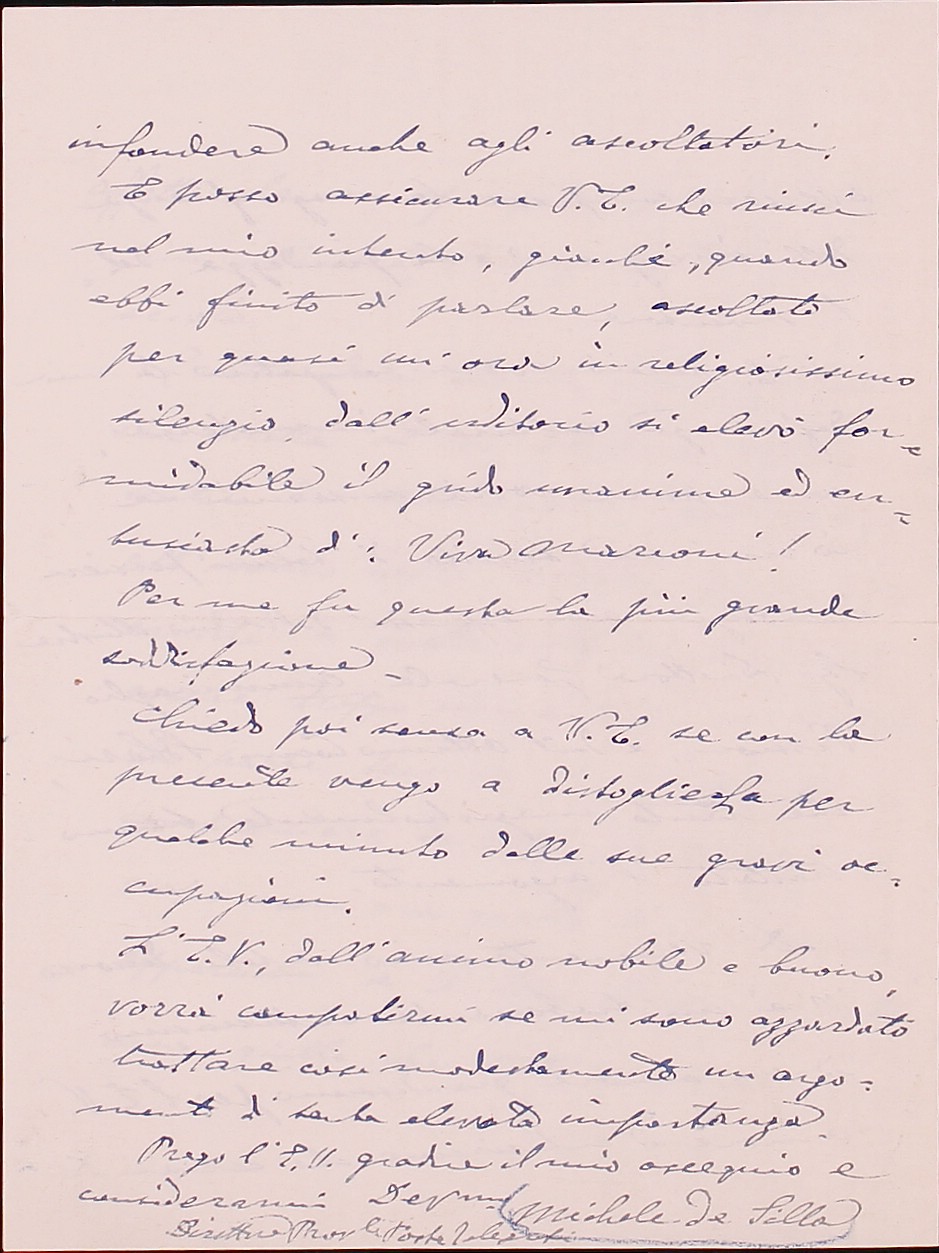 infondere anche agli ascoltatori.
E posso assicurare V.E. che riuscii
nel mio intento, giacché, quando
ebbi finito di parlare, ascoltato
per quasi un'ora in religiosissimo
silenzio, dall'uditorio si elevò for-
midabile il grido unanime ed en-
tusiasta di: Viva Marconi!
Per me fu questa la più grande
soddisfazione -
Chiedo poi scusa a V.E. se con la
presente vengo a distoglierLa per
qualche minuto dalle sue gravi oc-
cupazioni.
L'E.V., dall'animo nobile e buono,
vorrà compatirmi se mi sono azzardato
trattare così modestamente un argo-
mento di tanta elevata importanza.
Prego l'E.V. gradire il mio ossequio e
considerarmi Dev.mo Michele de Silla
Direttore Prov.le Poste